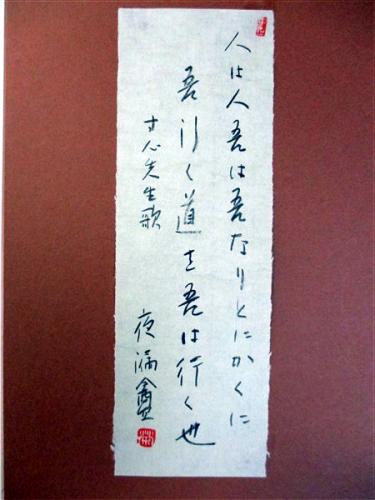 人は人吾は吾なりとにかくに
吾行く道を吾は行く也
寸心先生歌
夜